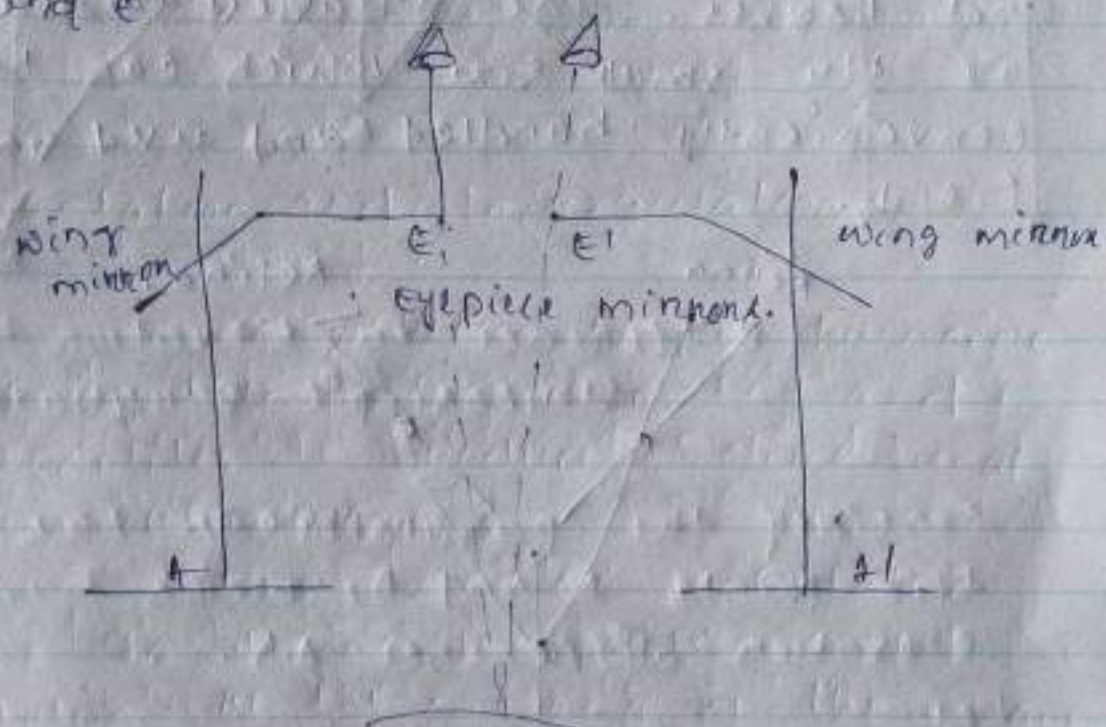 wing mirror
E, E' wing mirror
Eyepiece mirrors.
A A'